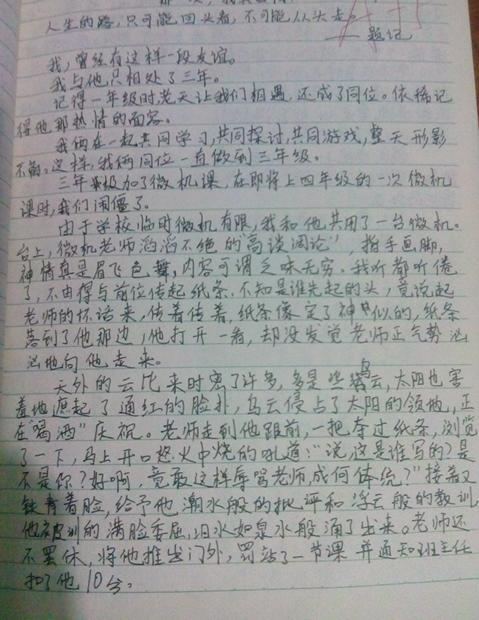 人生的路,只可能回头看,不可能从头走。
——题记
我,曾经有这样一段友谊。
我与他只相处了三年。
记得一年级时老天让我们相遇,还成了同位。依稀记
得他那热情的面容。
我俩在一起共同学习,共同探讨,共同游戏,整天形影
不离。这样,我俩同位一直做到三年级。
三年级加了微机课,在即将上四年级的一次微机
课时,我们闹僵了。
由于学校临时微机有限,我和他共用了一台微机。
台上,微机老师滔滔不绝的“高谈阔论”,指手画脚,
神情真是眉飞色舞,内容可谓乏味无穷。我听都听倦
了,不由得与前位传起纸条,不知是谁先起的头,竟说起
老师的坏话来,传着传着,纸条像定了神似的,纸条
落到了他那边,他打开一看,却没发觉老师正气势汹
汹地向他走来。
天外的云比来时密了许多,多是些乌云,太阳也害
羞地遮起了通红的脸扑,乌云侵占了太阳的领地,正
在“喝酒”庆祝。老师走到他跟前,一把夺过纸条,浏览
了一下,马上开口怒火中烧的吼道:“说,这是谁写的?是
不是你?好啊,竟敢这样辱骂老师,成何体统?”接着又
铁青着脸,给予他潮水般的批评和浮云般的教训,
他被训的满脸委屈,泪水如泉水般涌了出来。老师还
不罢休,将他推出门外,罚站了一节课,并通知班主任
扣了他10分。